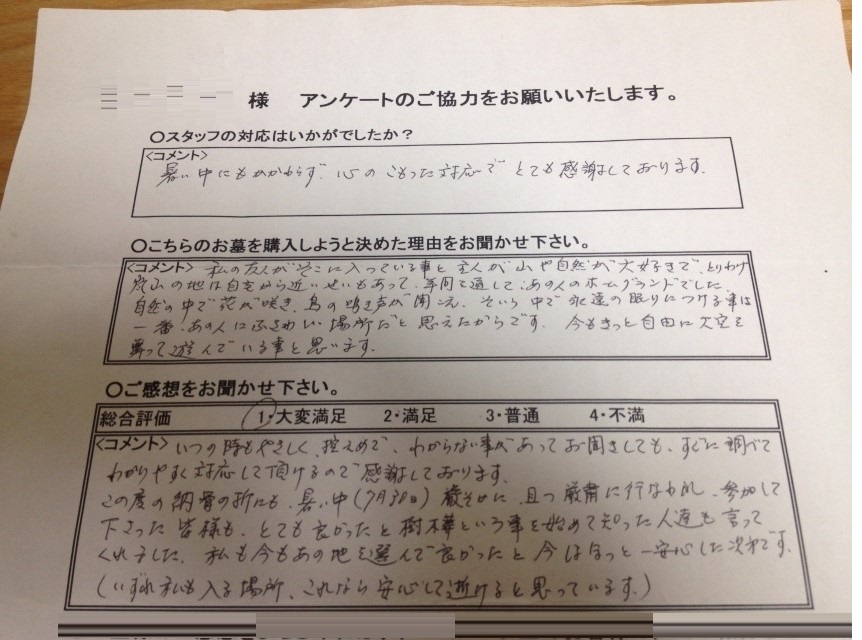 様 アンケートのご協力をお願いいたします。
○スタッフの対応はいかがでしたか？
<コメント>
暑い中にもかかわらず、心のこもった対応でとても感謝しております。
○こちらのお墓を購入しようと決めた理由をお聞かせ下さい。
<コメント> 私の友人がそこに入っている事と主人が山や自然が大好きで、とりわけ
嵐山の地は自宅から近いせいもあって、年間を通して、あの人のホームグランドでした。
自然の中で花が咲き、鳥の鳴き声が聞こえ、そういう中で永遠の眠りにつける事は
一番、あの人にふさわしい場所だと思えたからです。今もきっと自由に大空を
舞って遊んでいる事と思います。
○ご感想をお聞かせ下さい。
総合評価 1・大変満足 2・満足 3・普通 4・不満
<コメント> いつの時もやさしく、控えめで、わからない事があってお聞きしても、すぐに調べて
わかりやすく対応して頂けるので感謝しております。
この度の納骨の折にも、暑い中（7月30日）厳そかに、且つ厳粛に行なわれ、参加して
下さった皆様も、とても良かったと樹木葬という事を始めて知った人達も言って
くれました。私も今もあの地を選んで良かったと今はほっと一安心した次第です。
（いずれ私も入る場所、これなら安心して逝けると思っています。）